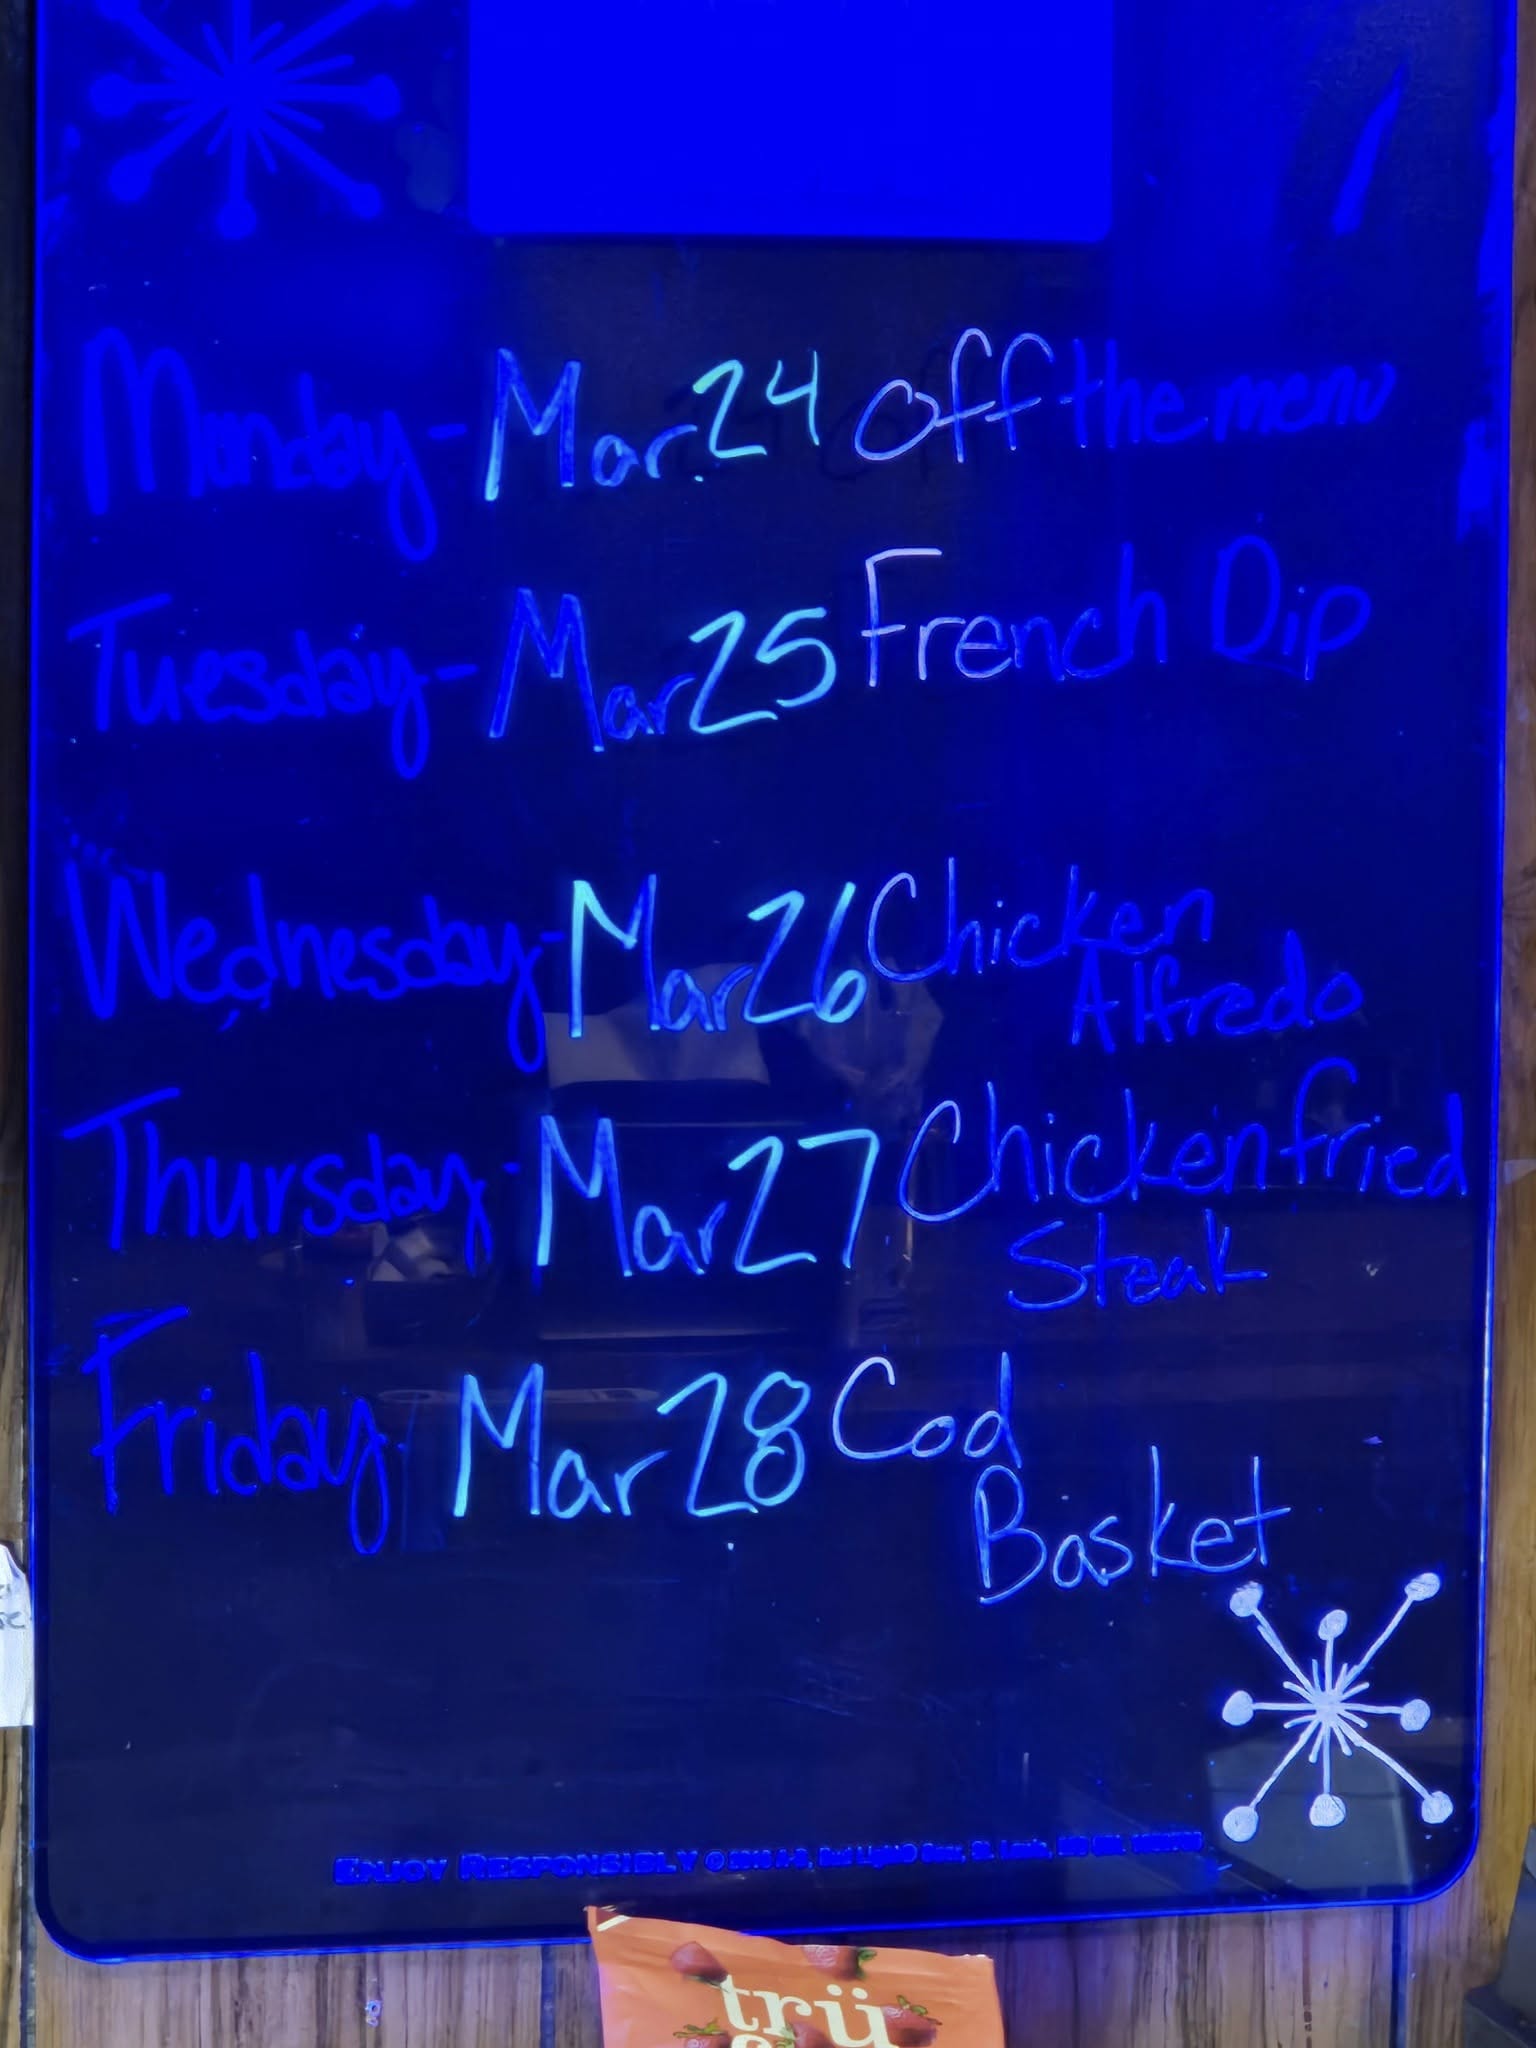 Monday - Mar. 24 Off the menu
Tuesday - Mar 25 French Dip
Wednesday - Mar 26 Chicken
Alfredo
Thursday - Mar 27 Chicken fried
Steak
Friday Mar 28 Cod
Basket
ENJOY RESPONSIBLY
trü